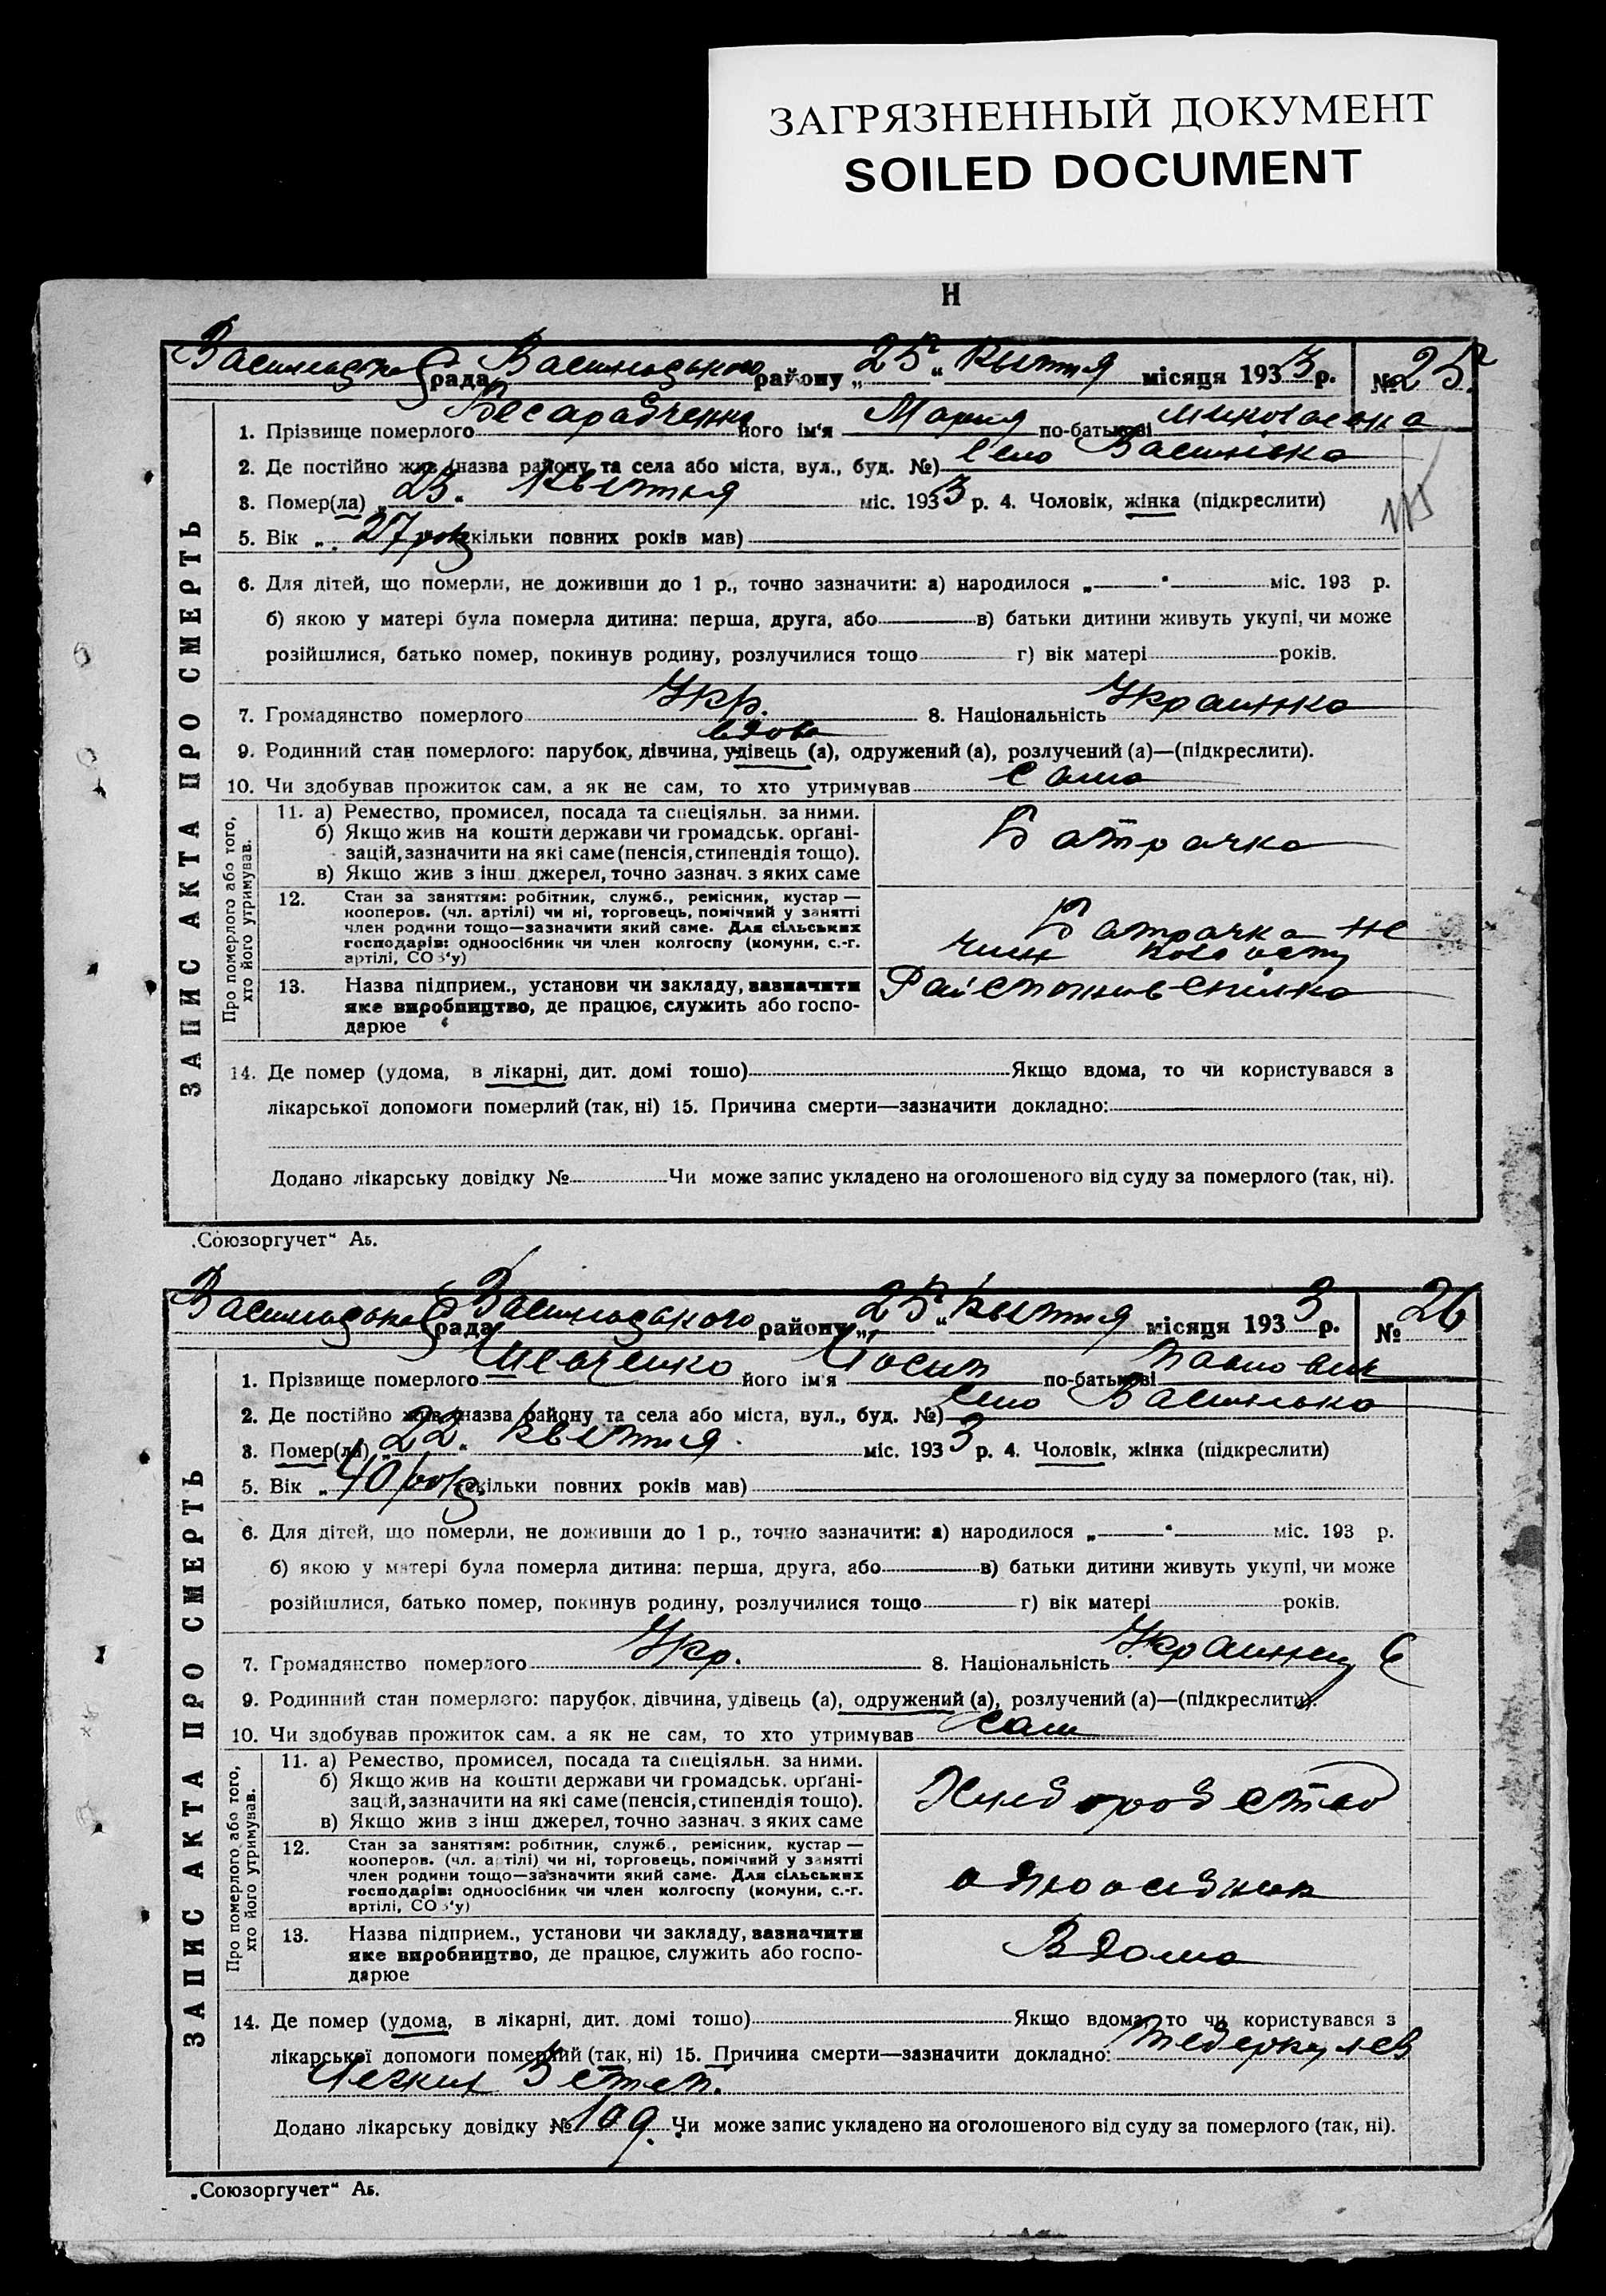 ЗАГРЯЗНЕННЫЙ ДОКУМЕНТ
SOILED DOCUMENT
Н
рада Васильківського району „25“ Квітня місяця 1933 р. № 25
ЗАПИС АКТА ПРО СМЕРТЬ
1. Прізвище померлого Бесарабченко його ім'я Мария по-батькові Миколаевна
2. Де постійно жив (назва району та села або міста, вул., буд. №) село
3. Помер(ла) „23“ Квитня міс. 1933 р. 4. Чоловік, жінка (підкреслити)
115
5. Вік „27 рок кільки повних років мав)
6. Для дітей, що померли, не доживши до 1 р., точно зазначити: а) народилося „ “ міс. 193 р.
б) якою у матері була померла дитина: перша, друга, або в) батьки дитини живуть укупі, чи може
розійшлися, батько помер, покинув родину, розлучилися тощо г) вік матері років.
7. Громадянство померлого Укр. 8. Національність Украинка
вдова
9. Родинний стан померлого: парубок, дівчина, удівець (а), одружений (а), розлучений (а)—(підкреслити).
10. Чи здобував прожиток сам, а як не сам, то хто утримував сама
Про померлого або того,
хто його утримував.
11. а) Ремество, промисел, посада та спеціяльн. за ними.
б) Якщо жив на кошти держави чи громадськ. орґані-
зацій, зазначити на які саме (пенсія, стипендія тощо).
в) Якщо жив з інш. джерел, точно зазнач. з яких саме
Батрачка
12. Стан за заняттям: робітник, служб., ремісник, кустар —
кооперов. (чл. артілі) чи ні, торговець, помічний у занятті
член родини тощо—зазначити який саме. Для сільських
господарів: одноосібник чи член колгоспу (комуни, с.-г.
артілі, СОЗ'у)
Батрачка не
член
13. Назва підприєм., установи чи закладу, зазначити
яке виробництво, де працює, служить або госпо-
дарює
спілка
14. Де помер (удома, в лікарні, дит. домі тощо) Якщо вдома, то чи користувався з
лікарської допомоги померлий (так, ні) 15. Причина смерти—зазначити докладно:
Додано лікарську довідку № Чи може запис укладено на оголошеного від суду за померлого (так, ні).
„Союзоргучет“ Аб.
рада Васильківського району „25“ Квитня місяця 1933 р. № 26
ЗАПИС АКТА ПРО СМЕРТЬ
1. Прізвище померлого Шевченко його ім'я Йосип по-батькові Павлович
2. Де постійно жив (назва району та села або міста, вул., буд. №) село
3. Помер(ла) „22“ Квитня міс. 1933 р. 4. Чоловік, жінка (підкреслити)
5. Вік „40 рок кільки повних років мав)
6. Для дітей, що померли, не доживши до 1 р., точно зазначити: а) народилося „ “ міс. 193 р.
б) якою у матері була померла дитина: перша, друга, або в) батьки дитини живуть укупі, чи може
розійшлися, батько помер, покинув родину, розлучилися тощо г) вік матері років.
7. Громадянство померлого Укр. 8. Національність Украинец
9. Родинний стан померлого: парубок, дівчина, удівець (а), одружений (а), розлучений (а)—(підкреслити).
10. Чи здобував прожиток сам, а як не сам, то хто утримував сам
Про померлого або того,
хто його утримував.
11. а) Ремество, промисел, посада та спеціяльн. за ними.
б) Якщо жив на кошти держави чи громадськ. орґані-
зацій, зазначити на які саме (пенсія, стипендія тощо).
в) Якщо жив з інш джерел, точно зазнач. з яких саме
Хлиборобство
12. Стан за заняттям: робітник, служб., ремісник, кустар —
кооперов. (чл. артілі) чи ні, торговець, помічний у занятті
член родини тощо—зазначити який саме. Для сільських
господарів: одноосібник чи член колгоспу (комуни, с.-г.
артілі, СОЗ'у)
одноосибник
13. Назва підприєм., установи чи закладу, зазначити
яке виробництво, де працює, служить або госпо-
дарює
Вдома
14. Де помер (удома, в лікарні, дит. домі тощо) Якщо вдома, то чи користувався з
лікарської допомоги померлий (так, ні) 15. Причина смерти—зазначити докладно:
3 степ.
Додано лікарську довідку № 109. Чи може запис укладено на оголошеного від суду за померлого (так, ні).
„Союзоргучет“ Аб.